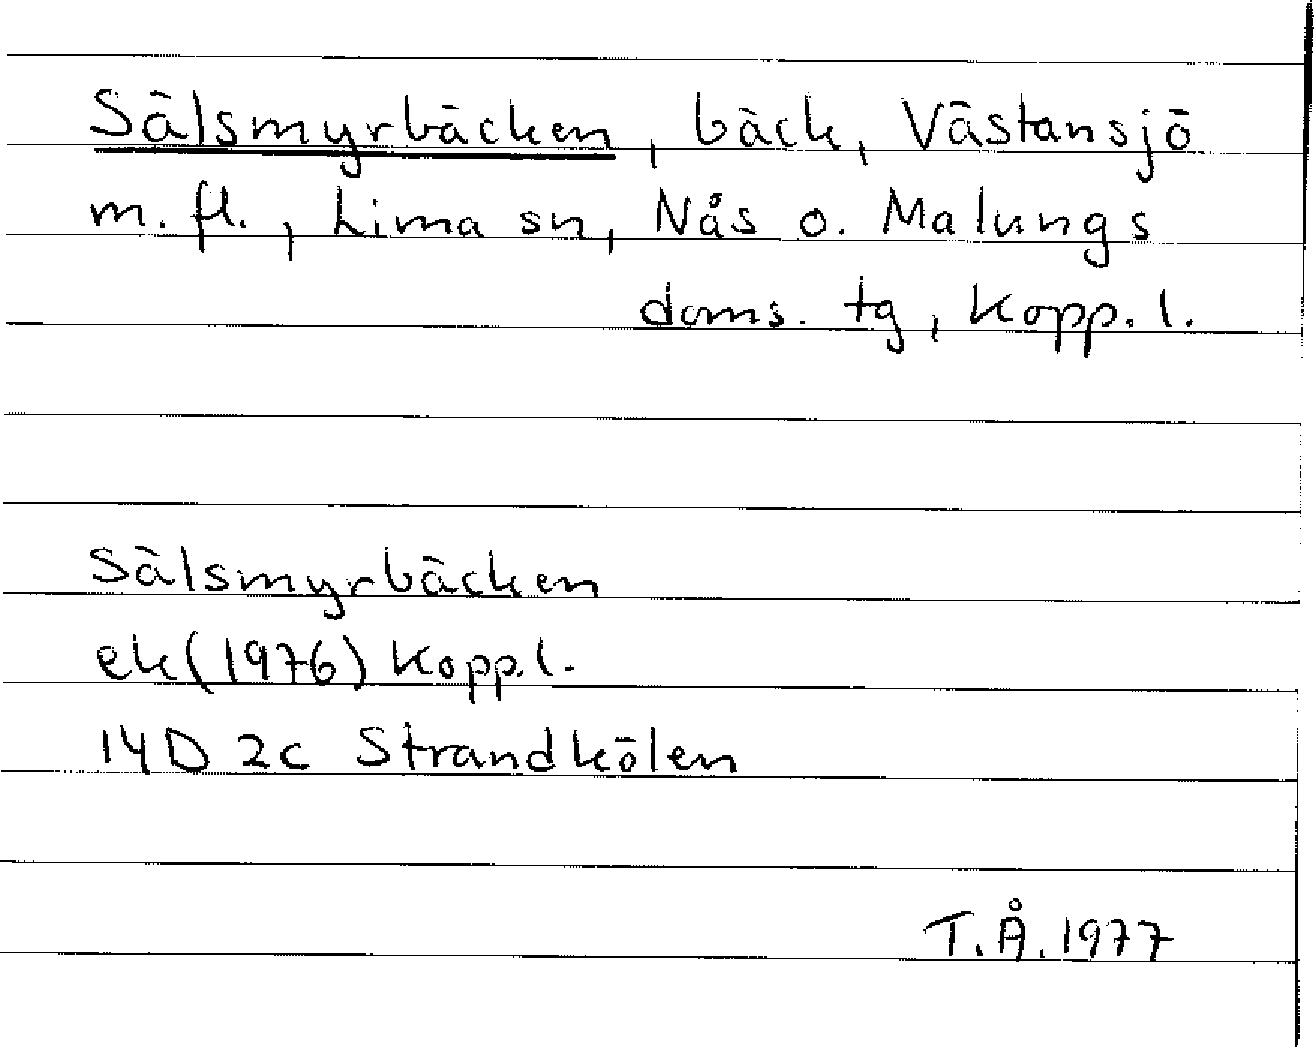 Sälsmyrbäcken, bäck, Västansjö
m. fl., Lima sn, Nås o. Malungs
doms. tg, Kopp. l.
Sälsmyrbäcken
ek (1976) Kopp. l.
14D 2c Strandkölen
T. Å. 1977